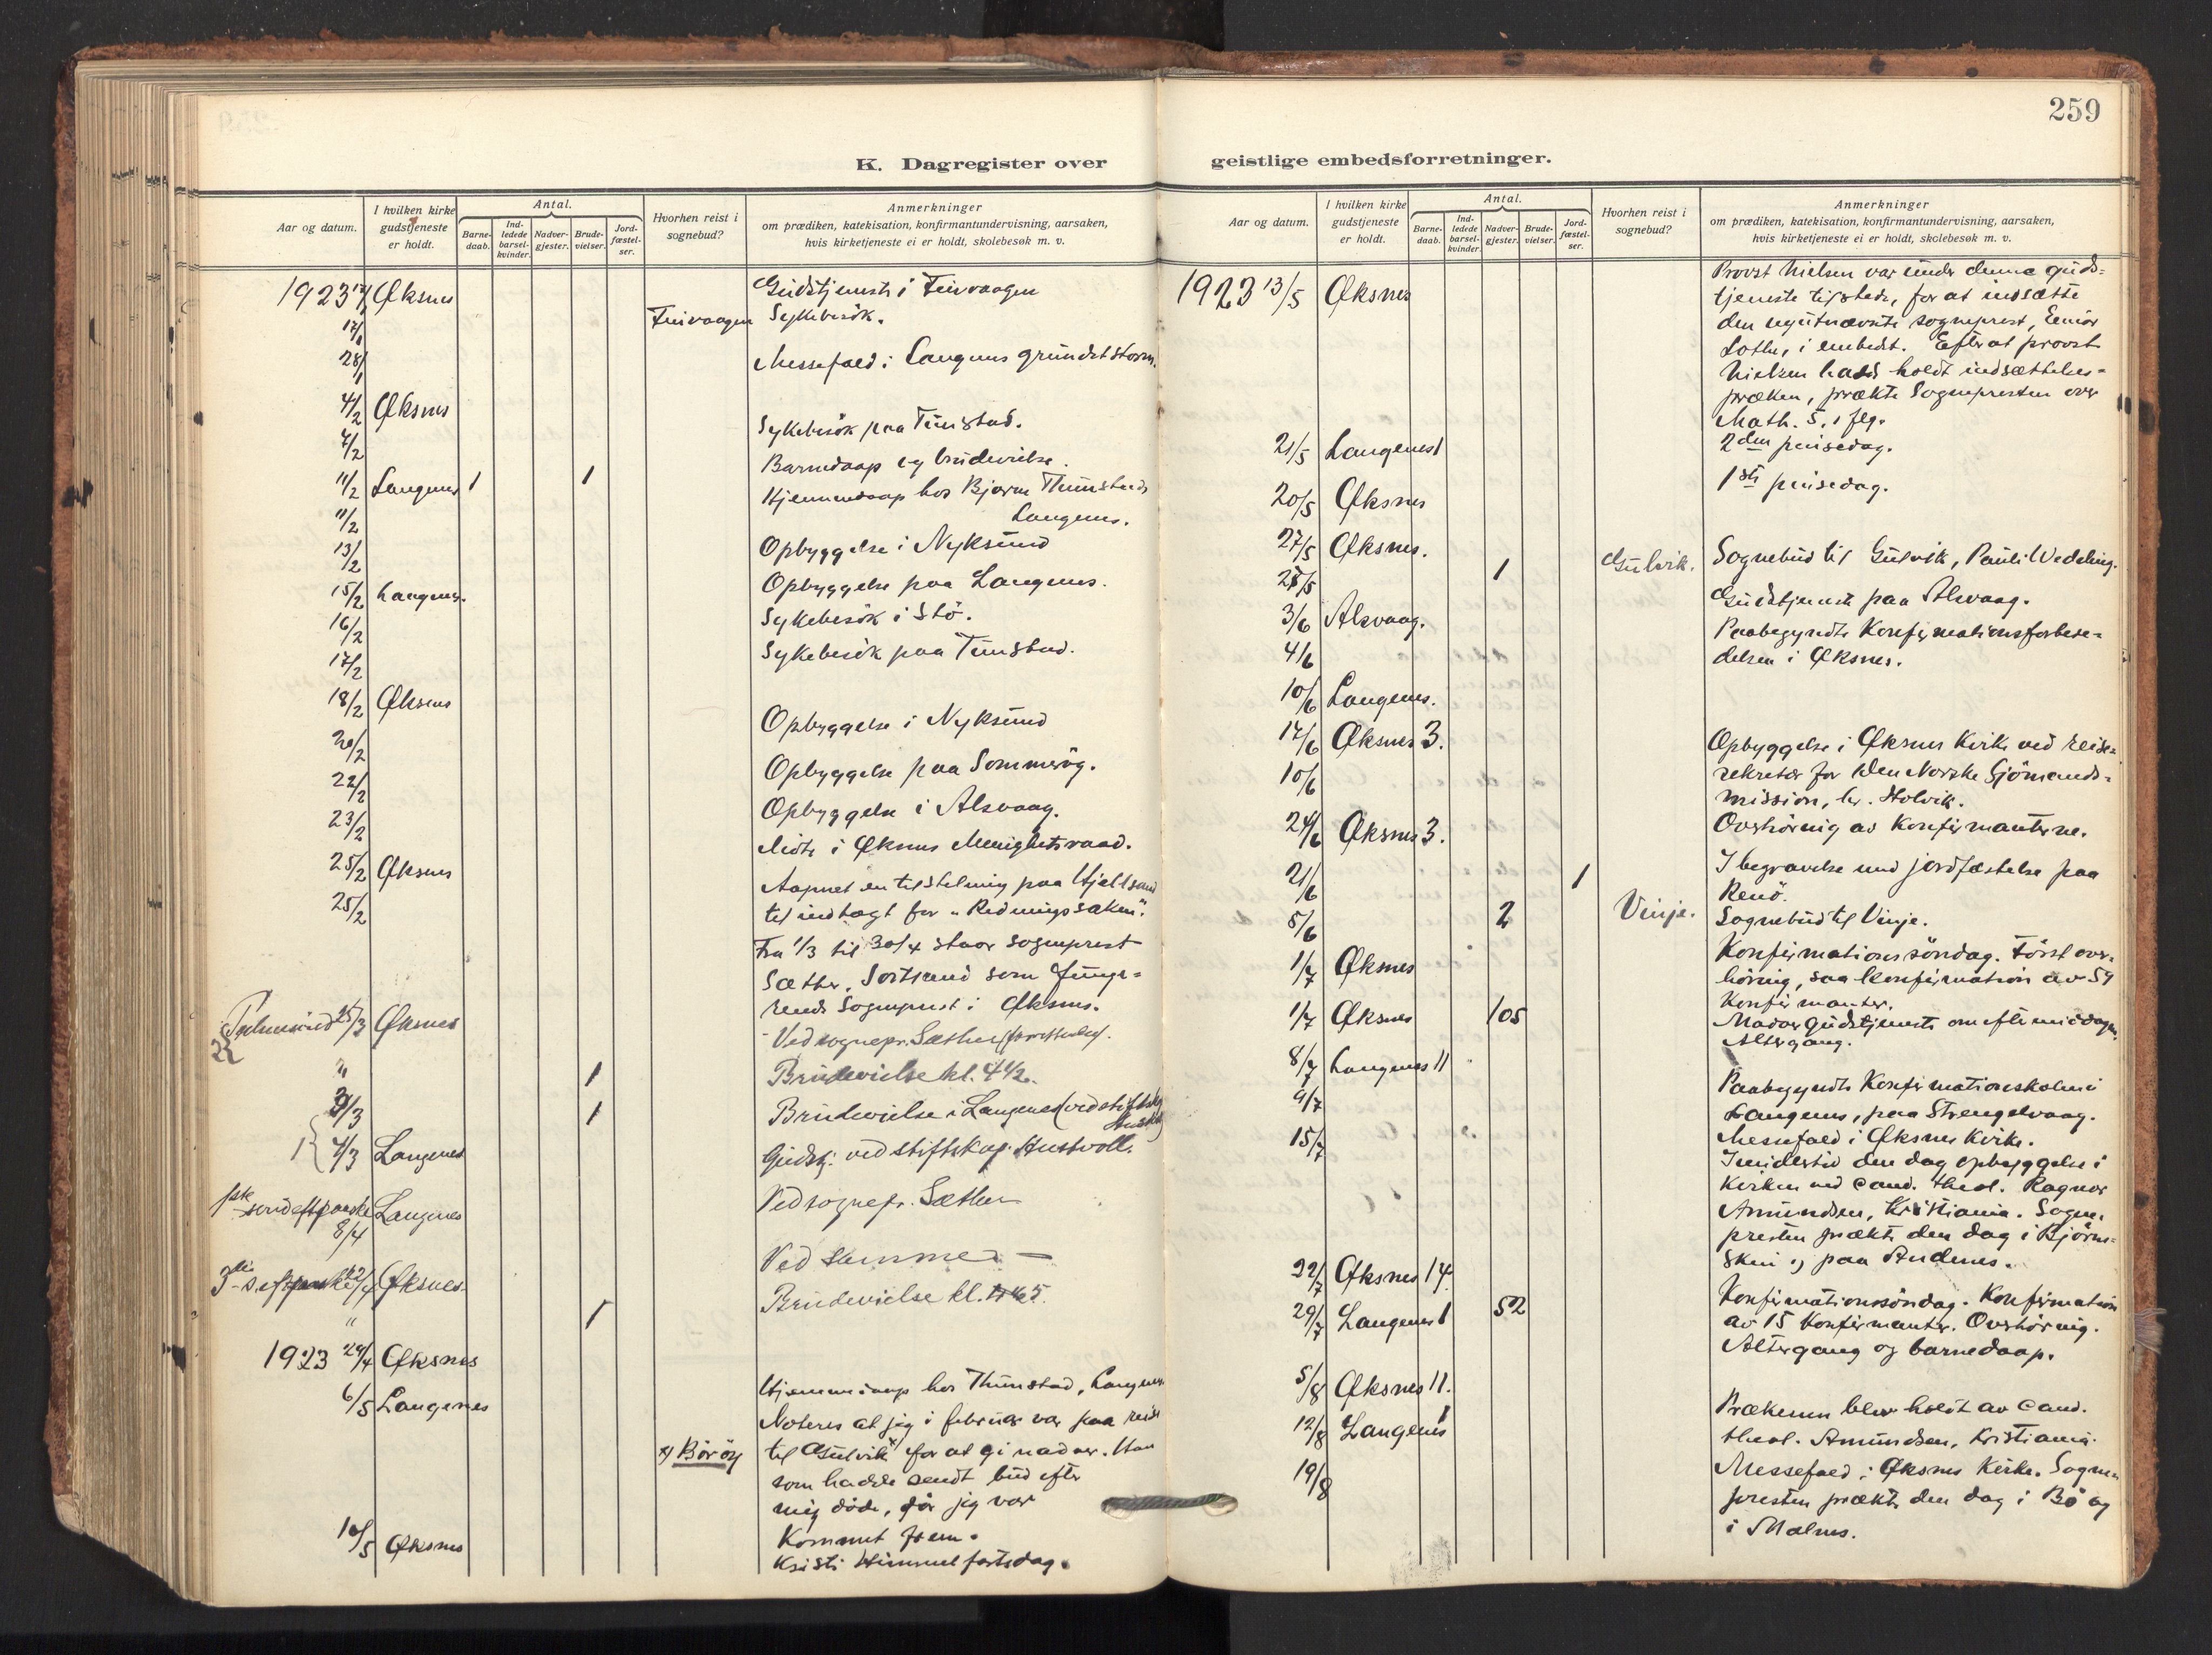 259
K. Dagregister over geistlige embedsforretninger.
Aar og datum.
I hvilken kirke gudstjeneste er holdt.
Antal.
Barne-daab.
Ind-ledede barsel-kvinder.
Nadver-gjester.
Brude-vielser.
Jord-fæstel-ser.
Hvorhen reist i sognebud?
Anmerkninger
om prædiken, katekisation, konfirmantundervisning, aarsaken,
hvis kirketjeneste ei er holdt, skolebesøk m. v.
1923 Øksnes Gudstjeneste i Tinvaagen
17/1 Tinvaagen Sykebesök.
28/1 Messefald i Langenes grundet storm.
4/2 Øksnes
7/2 Sykebesök paa Tunstad.
11/2 Langenes 1 1 Barnedaap og brudevielse.
11/2 Hjemmedaap hos Bjarne Thunstad,
Langenes.
13/2 Opbyggelse i Nyksund
15/2 Langenes. Opbyggelse paa Langenes.
16/2 Sykebesök i Stö.
17/2 Sykebesök paa Tunstad.
18/2 Øksnes
20/2 Opbyggelse i Nyksund
22/2 Opbyggelse paa Sommeröy.
23/2 Opbyggelse i Alsvaag.
25/2 Øksnes Möte i Øksnes Menighetsraad.
25/2 Aapnet en tilstelning paa
til indtægt for "Redningssaken".
Fra 1/3 til 30/4 staar sogneprest
Sæther, Sortland som funge-
rende Sogneprest i Øksnes.
25/3 Øksnes Ved sognepr. Sæther
" 1 Brudevielse kl. 4½.
1 Brudevielse i Langenes (ved stiftskap.
Langenes Gudstj. ved stiftskap. Hustvolt.
1ste sönd. eft. paaske 8/4 Langenes Ved sognepr. Sæther
3die s. eft. paaske 22/4 Øksnes. Ved samme —
" 1 Brudevielse kl. 5.
1923 29/4 Øksnes
6/5 Langenes Hjemmedaap hos Thunstad, Langenes.
Noteres at jeg i februar var paa reise
x) Böröy til Gulvik x for at gi nadver. Han
som hadde sendt bud efter
mig döde, för jeg var
kommet frem.
10/5 Øksnes Kristi Himmelfartsdag.
1923 13/5 Øksnes Provst Nielsen var under denne guds-
tjeneste tilstede, for at indsætte
den nyutnævnte sogneprest, Einar
Lothe, i embedet. Efter at provst
Nielsen hadde holdt indsættelses-
præken, prækte Sognepresten over
Math. 5, 1 flg.
21/5 Langenes 1 2den pinsedag.
20/5 Øksnes 1ste pinsedag.
27/5 Øksnes.
28/5 1 Gulvik. Sognebud til Gulvik, Pauli Wedding.
3/6 Alsvaag. Gudstjeneste paa Alsvaag.
4/6 Paabegyndte Konfirmationsforbere-
delsen i Øksnes.
10/6 Langenes.
17/6 Øksnes 3.
10/6 Opbyggelse i Øksnes Kirke ved reise-
sekretær for Den Norske Sjömands-
mission, hr. Holvik.
24/6 Øksnes 3. Overhöring av Konfirmanterne.
21/6 1 I begravelse med jordfæstelse paa
Renö.
5/6 2 Vinje. Sognebud til Vinje.
1/7 Øksnes Konfirmationssöndag. Först over-
höring, saa Konfirmation av 59
Konfirmanter.
1/7 Øksnes 105 Nadvergudstjeneste om eftermiddagen.
Altergang.
8/7 Langenes 11
9/7 Paabegyndte Konfirmationsskolen i
Langenes, paa Strengelvaag.
15/7 Messefald i Øksnes Kirke.
Imidlertid den dag opbyggelse i
Kirken ved Cand. theol. Ragnar
Amundsen, Kristiania. Sogne-
presten prækte den dag i Björn-
skin og paa Andenes.
22/7 Øksnes 14
29/7 Langenes 1 52 Konfirmationssöndag. Konfirmation
av 15 Konfirmanter. Overhöring.
Altergang og barnedaap.
5/8 Øksnes 11.
12/8 Langenes 1 Prækenen blev holdt av Cand.
theol. Amundsen, Kristiania.
19/8 Messefald i Øksnes Kirke. Sogne-
presten prækte den dag i Bö og
i Malnes.